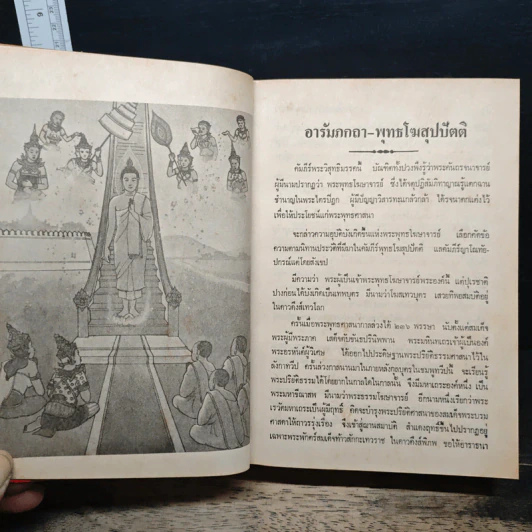 6
อารัมภกถา-พุทธโฆสุปปัตติ
คัมภีร์พระวิสุทธิมรรคนี้ บัณฑิตทั้งปวงพึงรู้ว่าพระคันถรจนาจารย์
ผู้มีนามปรากฏว่า พระพุทธโฆษาจารย์ ซึ่งได้จตุปฏิสัมภิทาญาณรู้แตกฉาน
ชำนาญในพระไตรปิฎก ผู้มีปัญญาวิสารทะแกล้วกล้า ได้รจนาตกแต่งไว้
เพื่อให้ประโยชน์แก่พระพุทธศาสนา
จะกล่าวความอุปัติบังเกิดขึ้นแห่งพระพุทธโฆษาจารย์ เลือกคัดข้อ
ความตามนิทานประวัติที่มีมาในคัมภีร์พุทธโฆสุปปัตติ แลคัมภีร์ญาโณทัย-
ปกรณ์แต่โดยสังเขป
มีความว่า พระผู้เป็นเจ้าพระพุทธโฆษาจารย์พระองค์นี้ แต่ปุเรชาติ
ปางก่อนได้บังเกิดเป็นเทพบุตร มีนามว่าโฆสเทวบุตร เสวยทิพยสมบัติอยู่
ในดาวดึงส์เทวโลก
ครั้นเมื่อพระพุทธศาสนากาลล่วงได้ ๒๓๖ พรรษา นับตั้งแต่สมเด็จ
พระผู้มีพระภาค เสด็จดับขันธปรินิพพาน พระมหินทเถรเจ้าผู้เป็นองค์
พระอรหันต์ผู้วิเศษ ได้ออกไปประดิษฐานพระปริยัติธรรมศาสนาไว้ใน
ลังกาทวีป ครั้นล่วงกาลนานมาในภายหลังกุลบุตรในชมพูทวีปนี้ จะเรียนรู้
พระปริยัติธรรมได้โดยยากในกาลใดในกาลนั้น ซึ่งมีมหาเถระองค์หนึ่ง เป็น
พระมหาขีณาสพ มีนามว่าพระธรรมโฆษาจารย์ อีกนามหนึ่งเรียกว่าพระ
เรวัตมหาเถระเป็นผู้มีฤทธิ์ คิดจะบำรุงพระปริยัติศาสนาของสมเด็จพระบรม
ศาสดาให้ถาวรรุ่งเรือง จึงเข้าสู่ฌานสมาบัติ สำแดงฤทธิ์ขึ้นไปปรากฏอยู่
เฉพาะพระพักตร์สมเด็จท้าวสักกะเทวราช ในดาวดึงส์พิภพ ขอให้อาราธนา